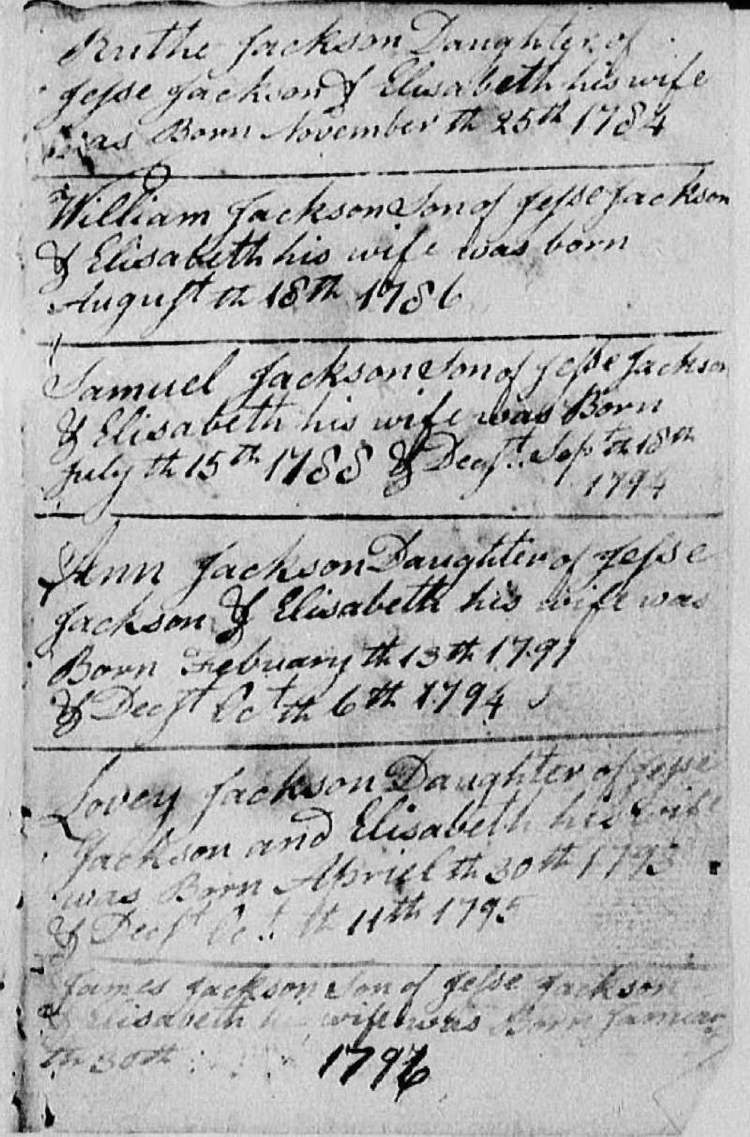 Ruthe Jackson Daughter of
Jesse Jackson & Elisabeth his wife
was Born November th 25th 1784
William Jackson Son of Jesse Jackson
& Elisabeth his wife was born
August th 18th 1786
Samuel Jackson Son of Jesse Jackson
& Elisabeth his wife was Born
July th 15th 1788 & Decst. Sept th 18th
1794
Ann Jackson Daughter of Jesse
Jackson & Elisabeth his wife was
Born February th 13th 1791
& Decst Oct th 6th 1794
Lovey Jackson Daughter of Jesse
Jackson and Elisabeth his wife
was Born Apriel th 30th 1793
& Decst Oct th 11th 1795
James Jackson Son of Jesse Jackson
& Elisabeth his wife was Born Januar
th 30th 1796